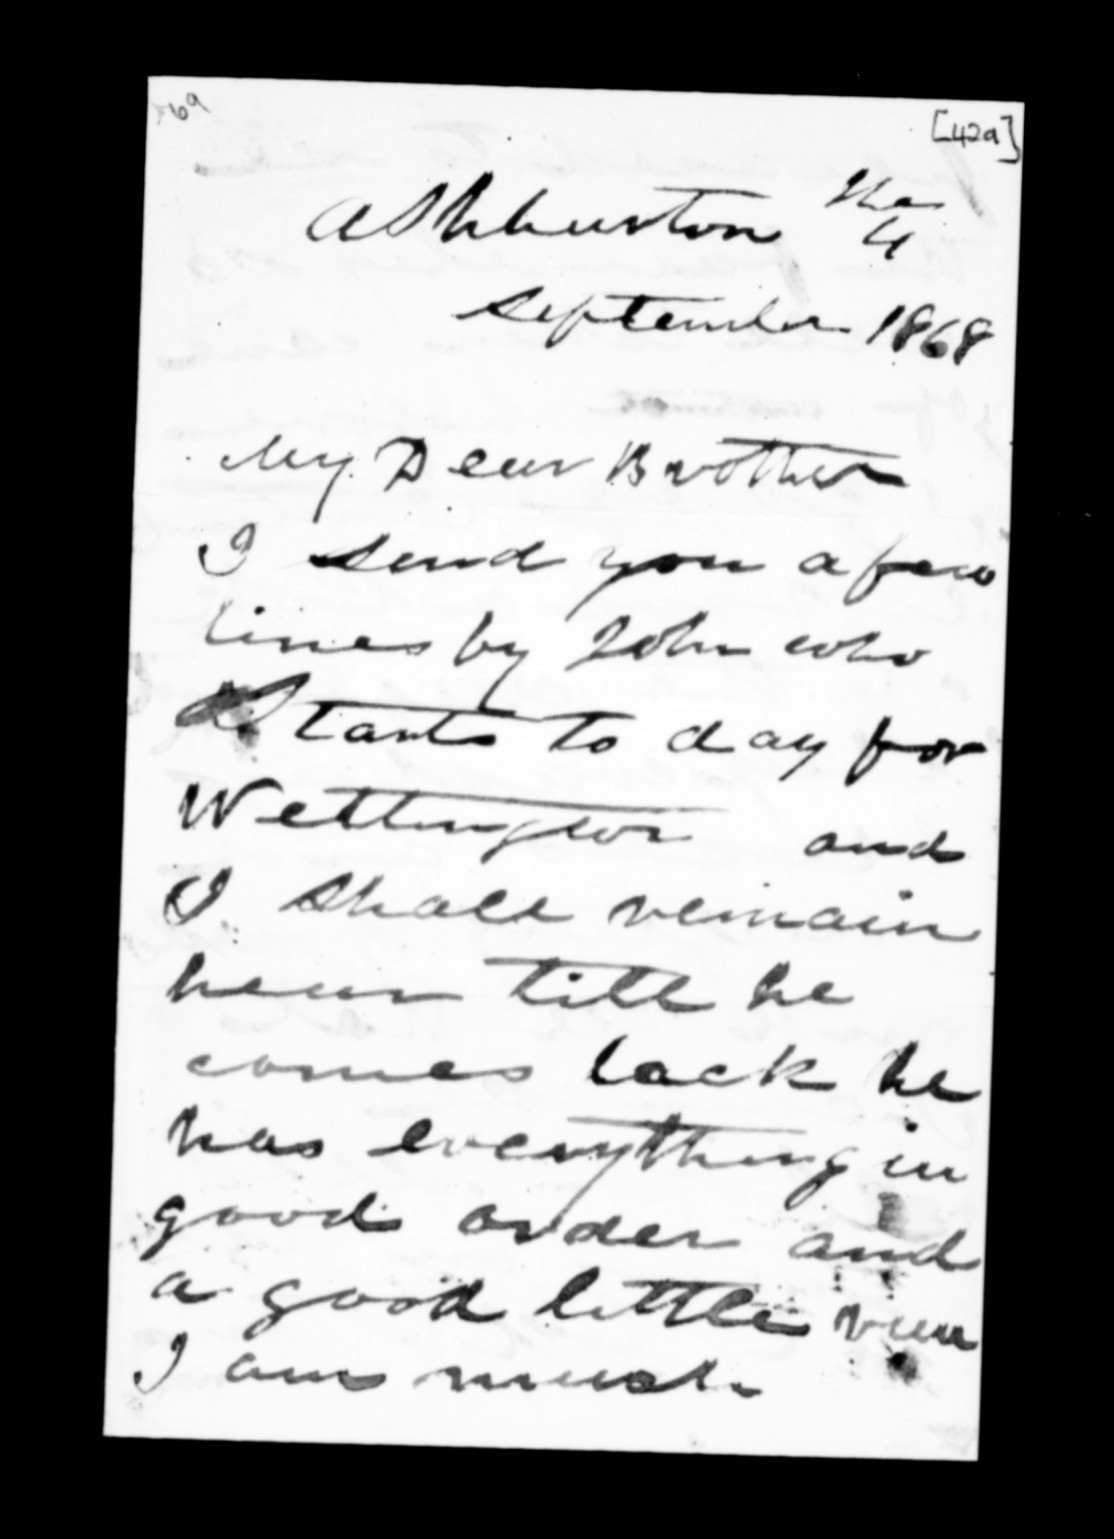 [42a]
Ashburton the
4
September 1868
My Dear Brother
I send you a few
lines by John who
Starts to day for
Wellington and
I shall remain
hear till he
comes back he
has everything in
good order and
a good little run
I am much